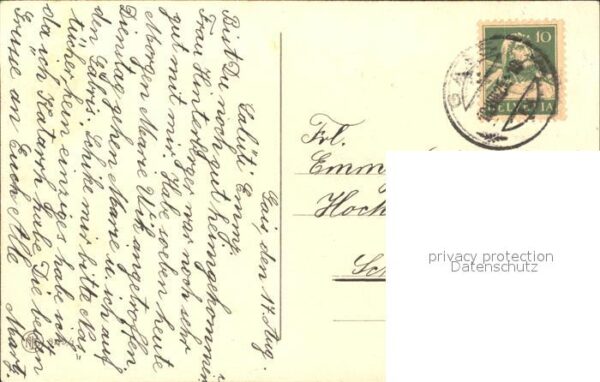 Gais den 17. Aug.
Saluti Emmy.
Bist Du noch gut heimgekommen
Frau Hinterberger war noch sehr
gut mit mir. Habe soeben heute
Morgen Marie Uik angetroffen.
Dienstag gehen Marie u. ich auf
den Gäbris. Schicke mir bitte Nas-
tücher kein einziges habe ich
da ich Katarrh habe. Die besten
Grüsse an Euch Alle Marg.
10
HELVETIA
GAIS
Frl.
Emmy
Hoch
Sch
privacy protection
Datenschutz